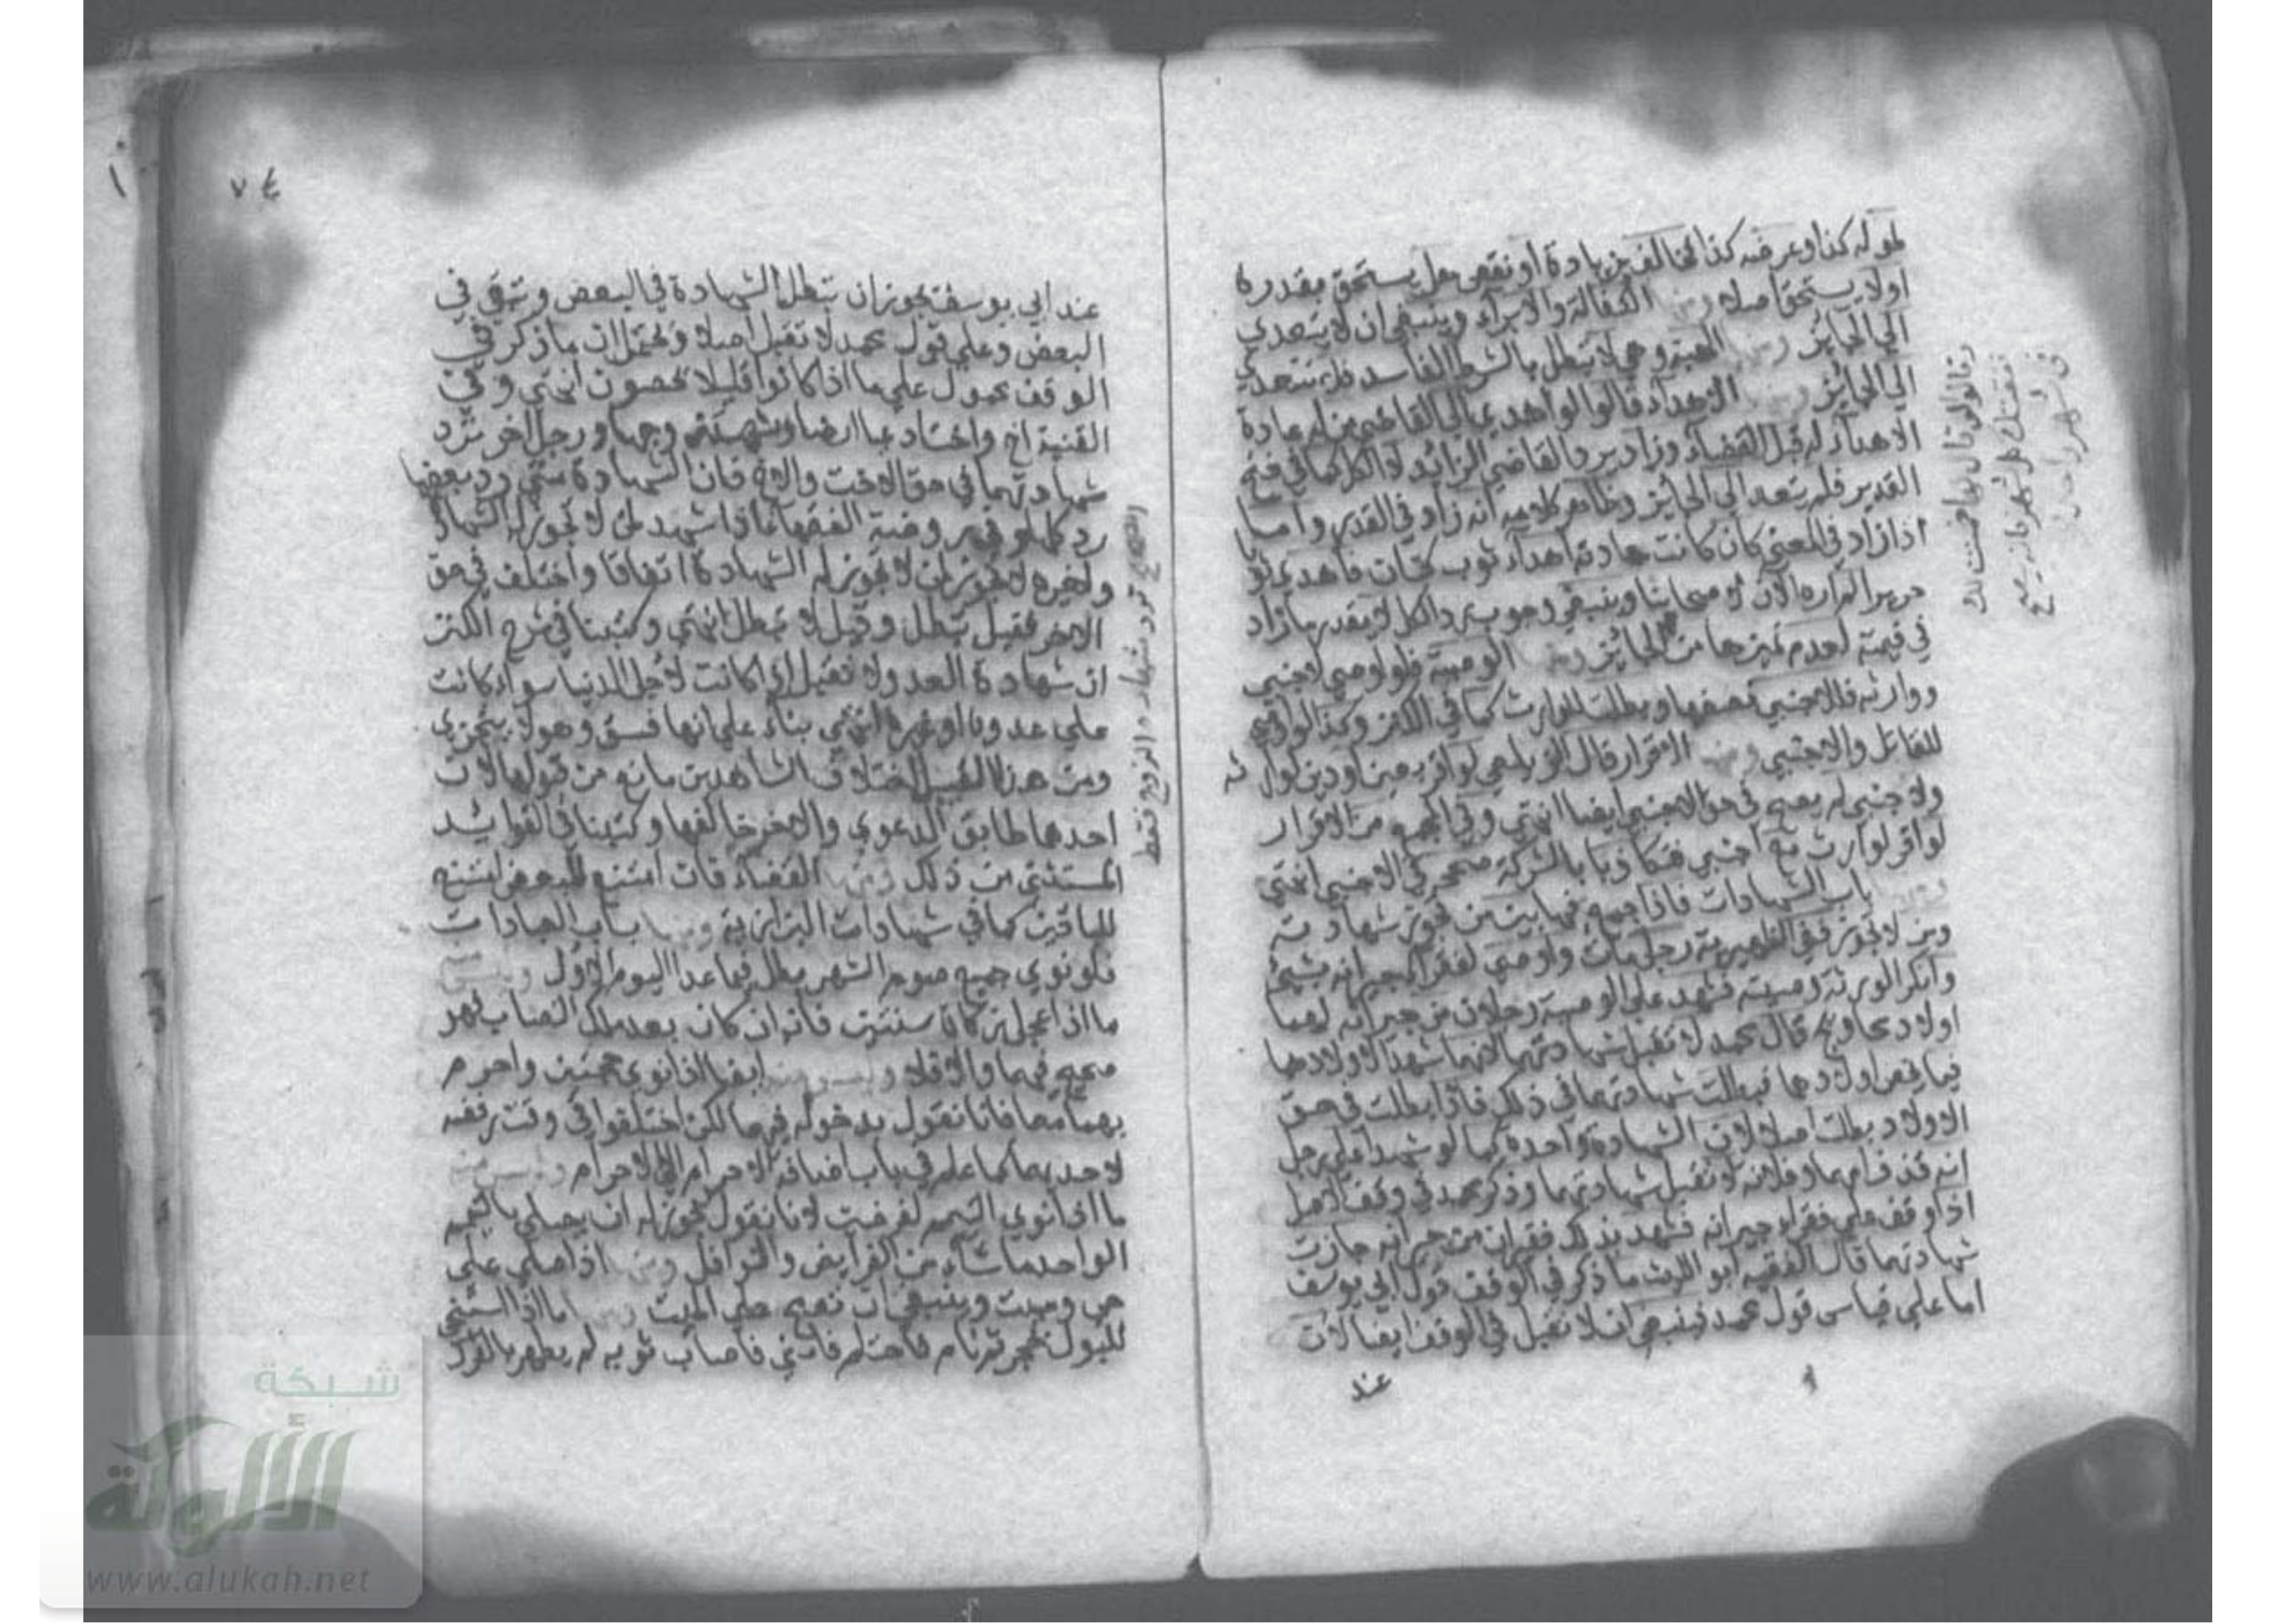 طوله كذا وعرضه كذا فخالف بزيادة أو نقص هل يستحق بقدره
اولا يستحق اصلا ومنها الكفالة والابراء وينبغي ان لا يتعدي
الي الجائز ومنها الهبة وهي لا تبطل بالشرط الفاسد فلا يتعدي
الي الجائز ومنها الاهداء قالوا لو اهدي الي القاضي من له عادة
الاهداء له قبل القضاء وزاد يرد القاضي الزائد لا الكل كما في فتح
القدير فلم يتعد الي الجائز وظاهر كلامهم انه زاد في القدر واما
اذا زاد في المعني كان كانت عادته اهداء ثوب كتان فاهدي ثوبا
حريرا لم اره الآن لاصحابنا وينبغي وجوب رد الكل لا بقدر ما زاد
في قيمته لعدم تميزها من الجائز ومنها الوصية فلو اوصي لاجنبي
ووارثه فللاجنبي نصفها وبطلت للوارث كما في الكنز وكذا لو اوصي
للقاتل والاجنبي ومنها الاقرار قال الزيلعي لو اقر بعين او دين لوارثه
ولاجنبي لم يصح في حق الاجنبي ايضا انتهي وفي المجمع من الاقرار
لو اقر لوارث مع اجنبي فتكاذبا بالشركة صححه في الاجنبي انتهي
ومنها باب الشهادات فاذا جمع فيها بين من تجوز شهادته
ومن لا تجوز ففي الظهيرية رجل مات واوصي لفقراء جيرانه بشيئ
وانكر الورثة وصيته فشهد علي الوصية رجلان من جيرانه لهما
اولاد محاويج قال محمد لا تقبل شهادتهما لانهما شهدا لاولادهما
فيما يخص اولادهما فبطلت شهادتهما في ذلك فاذا بطلت في حق
الاولاد بطلت اصلا لان الشهادة واحدة كما لو شهدا علي رجل
انه قذف امهما وفلانة لا تقبل شهادتهما وذكر محمد في وقف الاصل
اذا وقف علي فقراء جيرانه فشهد بذلك فقيران من جيرانه جازت
شهادتهما قال الفقيه ابو الليث ما ذكر في الوقف قول ابي يوسف
اما علي قياس قول محمد فينبغي ان لا تقبل في الوقف ايضا لان
عند
وقالوا لو قال لها ضمنت لك
نفقتك كل شهر فانه يصح
في شهر واحد
٧٤
عند ابي يوسف يجوز ان تبطل الشهادة في البعض وتبقي في
البعض وعلي قول محمد لا تقبل اصلا ويحتمل ان ما ذكر في
الوقف محمول علي ما اذا كانوا قليلا يحصون انتهي وفي
القنية اخ واخت ادعيا ارضا وشهد زوجها ورجل اخر ترد
شهادتهما في حق الاخت والاخ فان الشهادة متي رد بعضها
رد كلها وفي روضة الفقهاء اذا شهد لمن لا تجوز له الشهادة
ولغيره لا تجوز لمن لا تجوز له الشهادة اتفاقا واختلف في حق
الاخر فقيل تبطل وقيل لا تبطل انتهي وكتبنا في شرح الكنز
ان شهادة العدو لا تقبل اذا كانت لاجل الدنيا سواء كانت
علي عدوه او غيره انتهي بناء علي انها فسق وهو لا يتجزي
ومن هذا القبيل اختلاف الشاهدين مانع من قبولها لان
احدهما طابق الدعوي والاخر خالفها وكتبنا في الفوائد
المستثني من ذلك ومنها القضاء فان امتنع للبعض امتنع
للباقين كما في شهادات البزازية ومنها باب العبادات
فلو نوي جميع صوم الشهر بطل فيما عدا اليوم الاول وليس منه
ما اذا عجل زكاة سنتين فانه ان كان بعد ملك النصاب فهو
صحيح فيهما والا فلا وليس منه ايضا اذا نوي حجتين واحرم
بهما معا فانا نقول بدخوله فيهما لكن اختلفوا في وقت رفضه
لاحديهما كما علم في باب اضافة الاحرام الي الاحرام وليس منه
ما اذا نوي التيمم لفرضين لانا نقول يجوز له ان يصلي بالتيمم
الواحد ما شاء من الفرايض والنوافل ومنها اذا صلي علي
حي وميت وينبغي ان تصح علي الميت ومنها ما اذا استنجي
للبول بحجر ثم نام فاحتلم فامني فاصاب ثوبه لم يطهر بالفرك
الاصح ترد شهادة الزوج فقط
شبكة
الألوكة
www.alukah.net